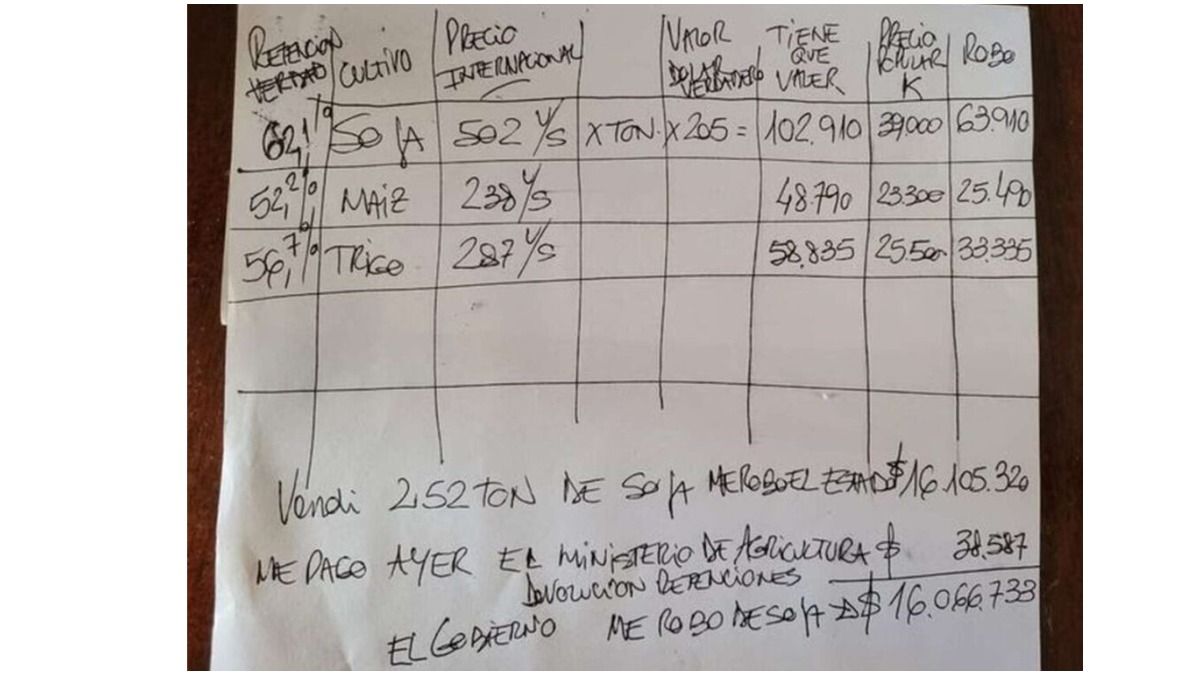 RETENCION VERDAD CULTIVO PRECIO INTERNACIONAL VALOR DOLAR VERDADERO TIENE QUE VALER PRECIO K ROBO
62,1% SOJA 502 U/S X TON. X 205 = 102.910 39.000 63.910
52,2% MAIZ 238 U/S 48.790 23.300 25.490
56,7% TRIGO 287 U/S 58.835 25.500 33.335
Vendi 252 TON DE SOJA ME ROBO EL ESTADO $16.105.320
ME PAGO AYER EL MINISTERIO DE AGRICULTURA $ 38.587
DEVOLUCION RETENCIONES
EL GOBIERNO ME ROBO DE SOJA $16.066.733